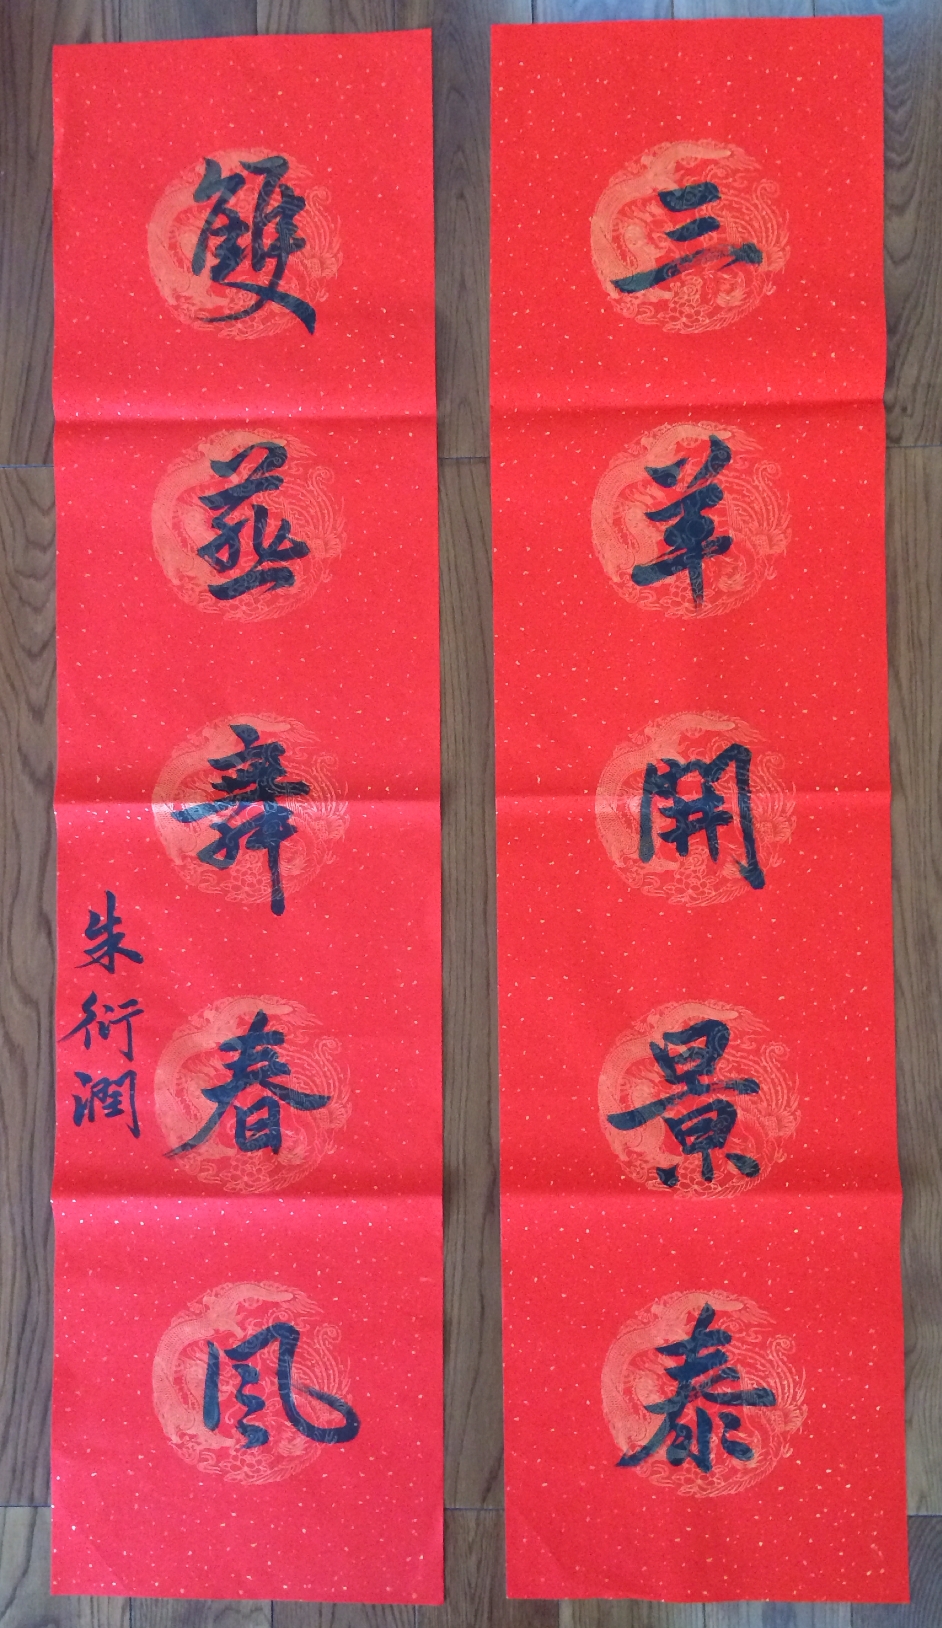 三羊開景泰
雙燕舞春風
朱衍潤